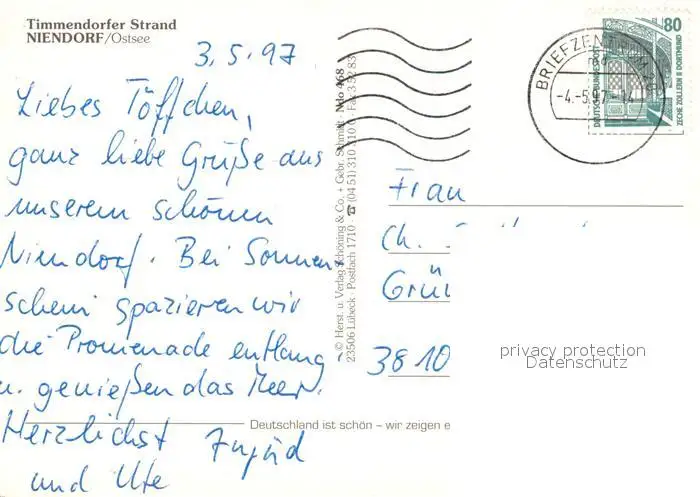 Timmendorfer Strand
NIENDORF/Ostsee
3.5.97
Liebes Töffchen,
ganz liebe Grüße aus
unserem schönen
Niendorf. Bei Sonnen-
schein spazieren wir
die Promenade entlang
u. genießen das Meer.
Herzlichst
und Ute
© Herst. u. Verlag Schöning & Co. + Gebr. Schmidt · Ndo 468
23506 Lübeck · Postfach 1710 · ☎ (04 51) 310 310 · Fax 3 52 83
Deutschland ist schön – wir zeigen e
80
DEUTSCHE BUNDESPOST
ZECHE ZOLLERN II DORTMUND
BRIEFZENTRUM
-4.-5.97-14
Frau
Ch.
Grü
3810
privacy protection
Datenschutz